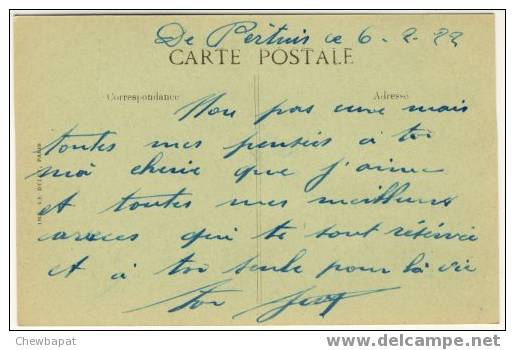 De Pertuis ce 6-2-22
CARTE POSTALE
Correspondance
Adresse
Non pas une mais
toutes mes pensées à toi
mà cherie que j'aime
et toutes mes meilleurs
caresses qui te sont résérvée
et à toi seule pour là vie
ton
IMP. PARIS
Chewbapat
www.delcampe.net